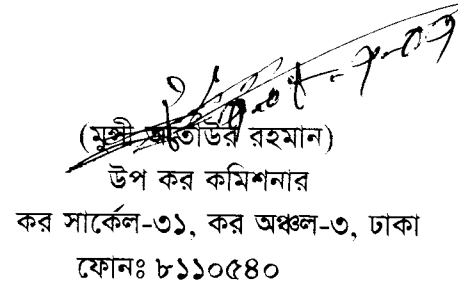 (মুন্সী আতাউর রহমান)
উপ কর কমিশনার
কর সার্কেল-৩১, কর অঞ্চল-৩, ঢাকা
ফোনঃ ৮১১০৫৪০